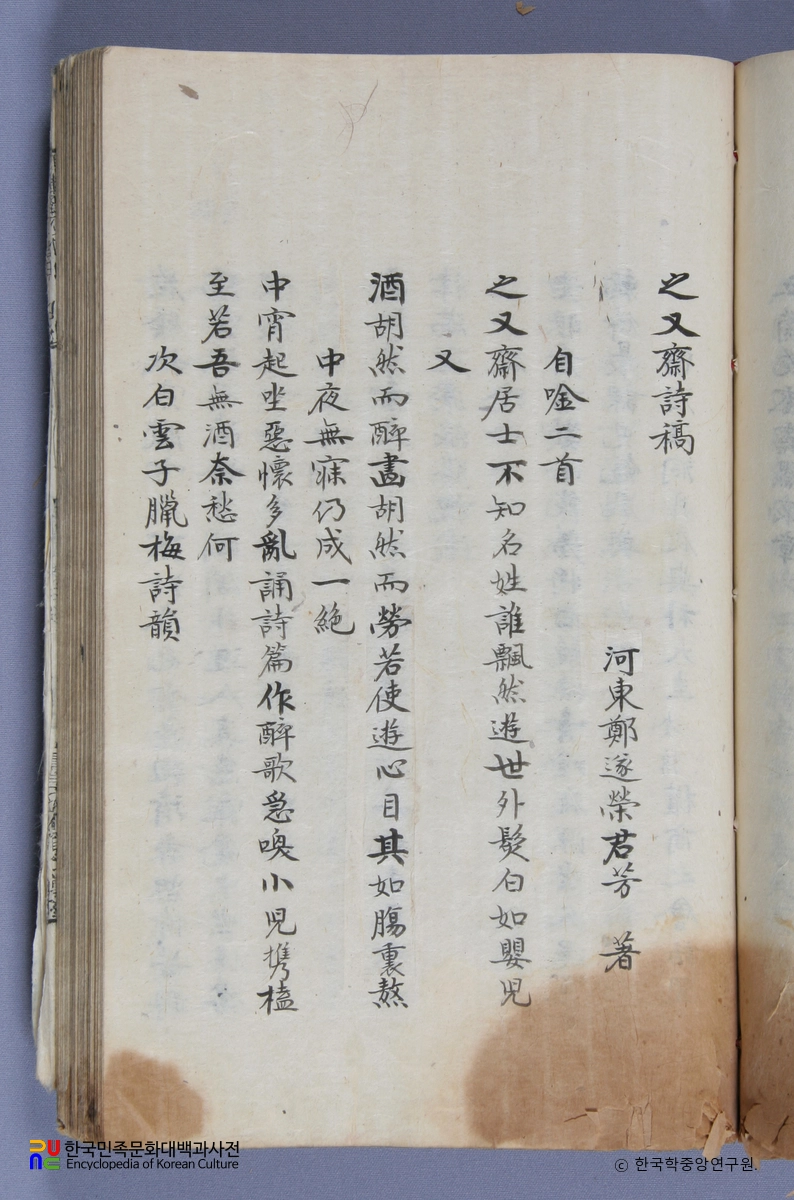 之又齋詩稿
河東鄭遂榮君芳 著
自唫二首
之又齋居士不知名姓誰飄然遊世外髮白如嬰児
又
酒胡然而醉晝胡然而勞若使遊心目其如膓裏熬
中夜無寐仍成一絶
中宵起坐惡懷多亂誦詩篇作醉歌急喚小児携榼
至若吾無酒奈愁何
次白雲子臘梅詩韻
한국민족문화대백과사전
Encyclopedia of Korean Culture
ⓒ 한국학중앙연구원.